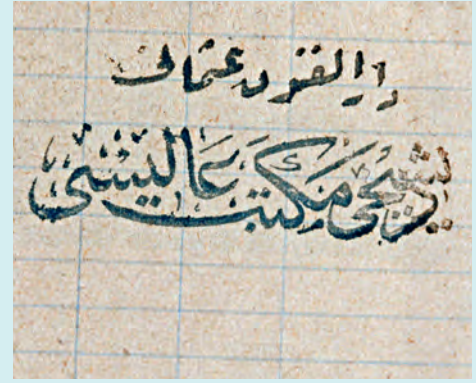 دار الفنون عثمانی
دیشجی مكتب عالیسی